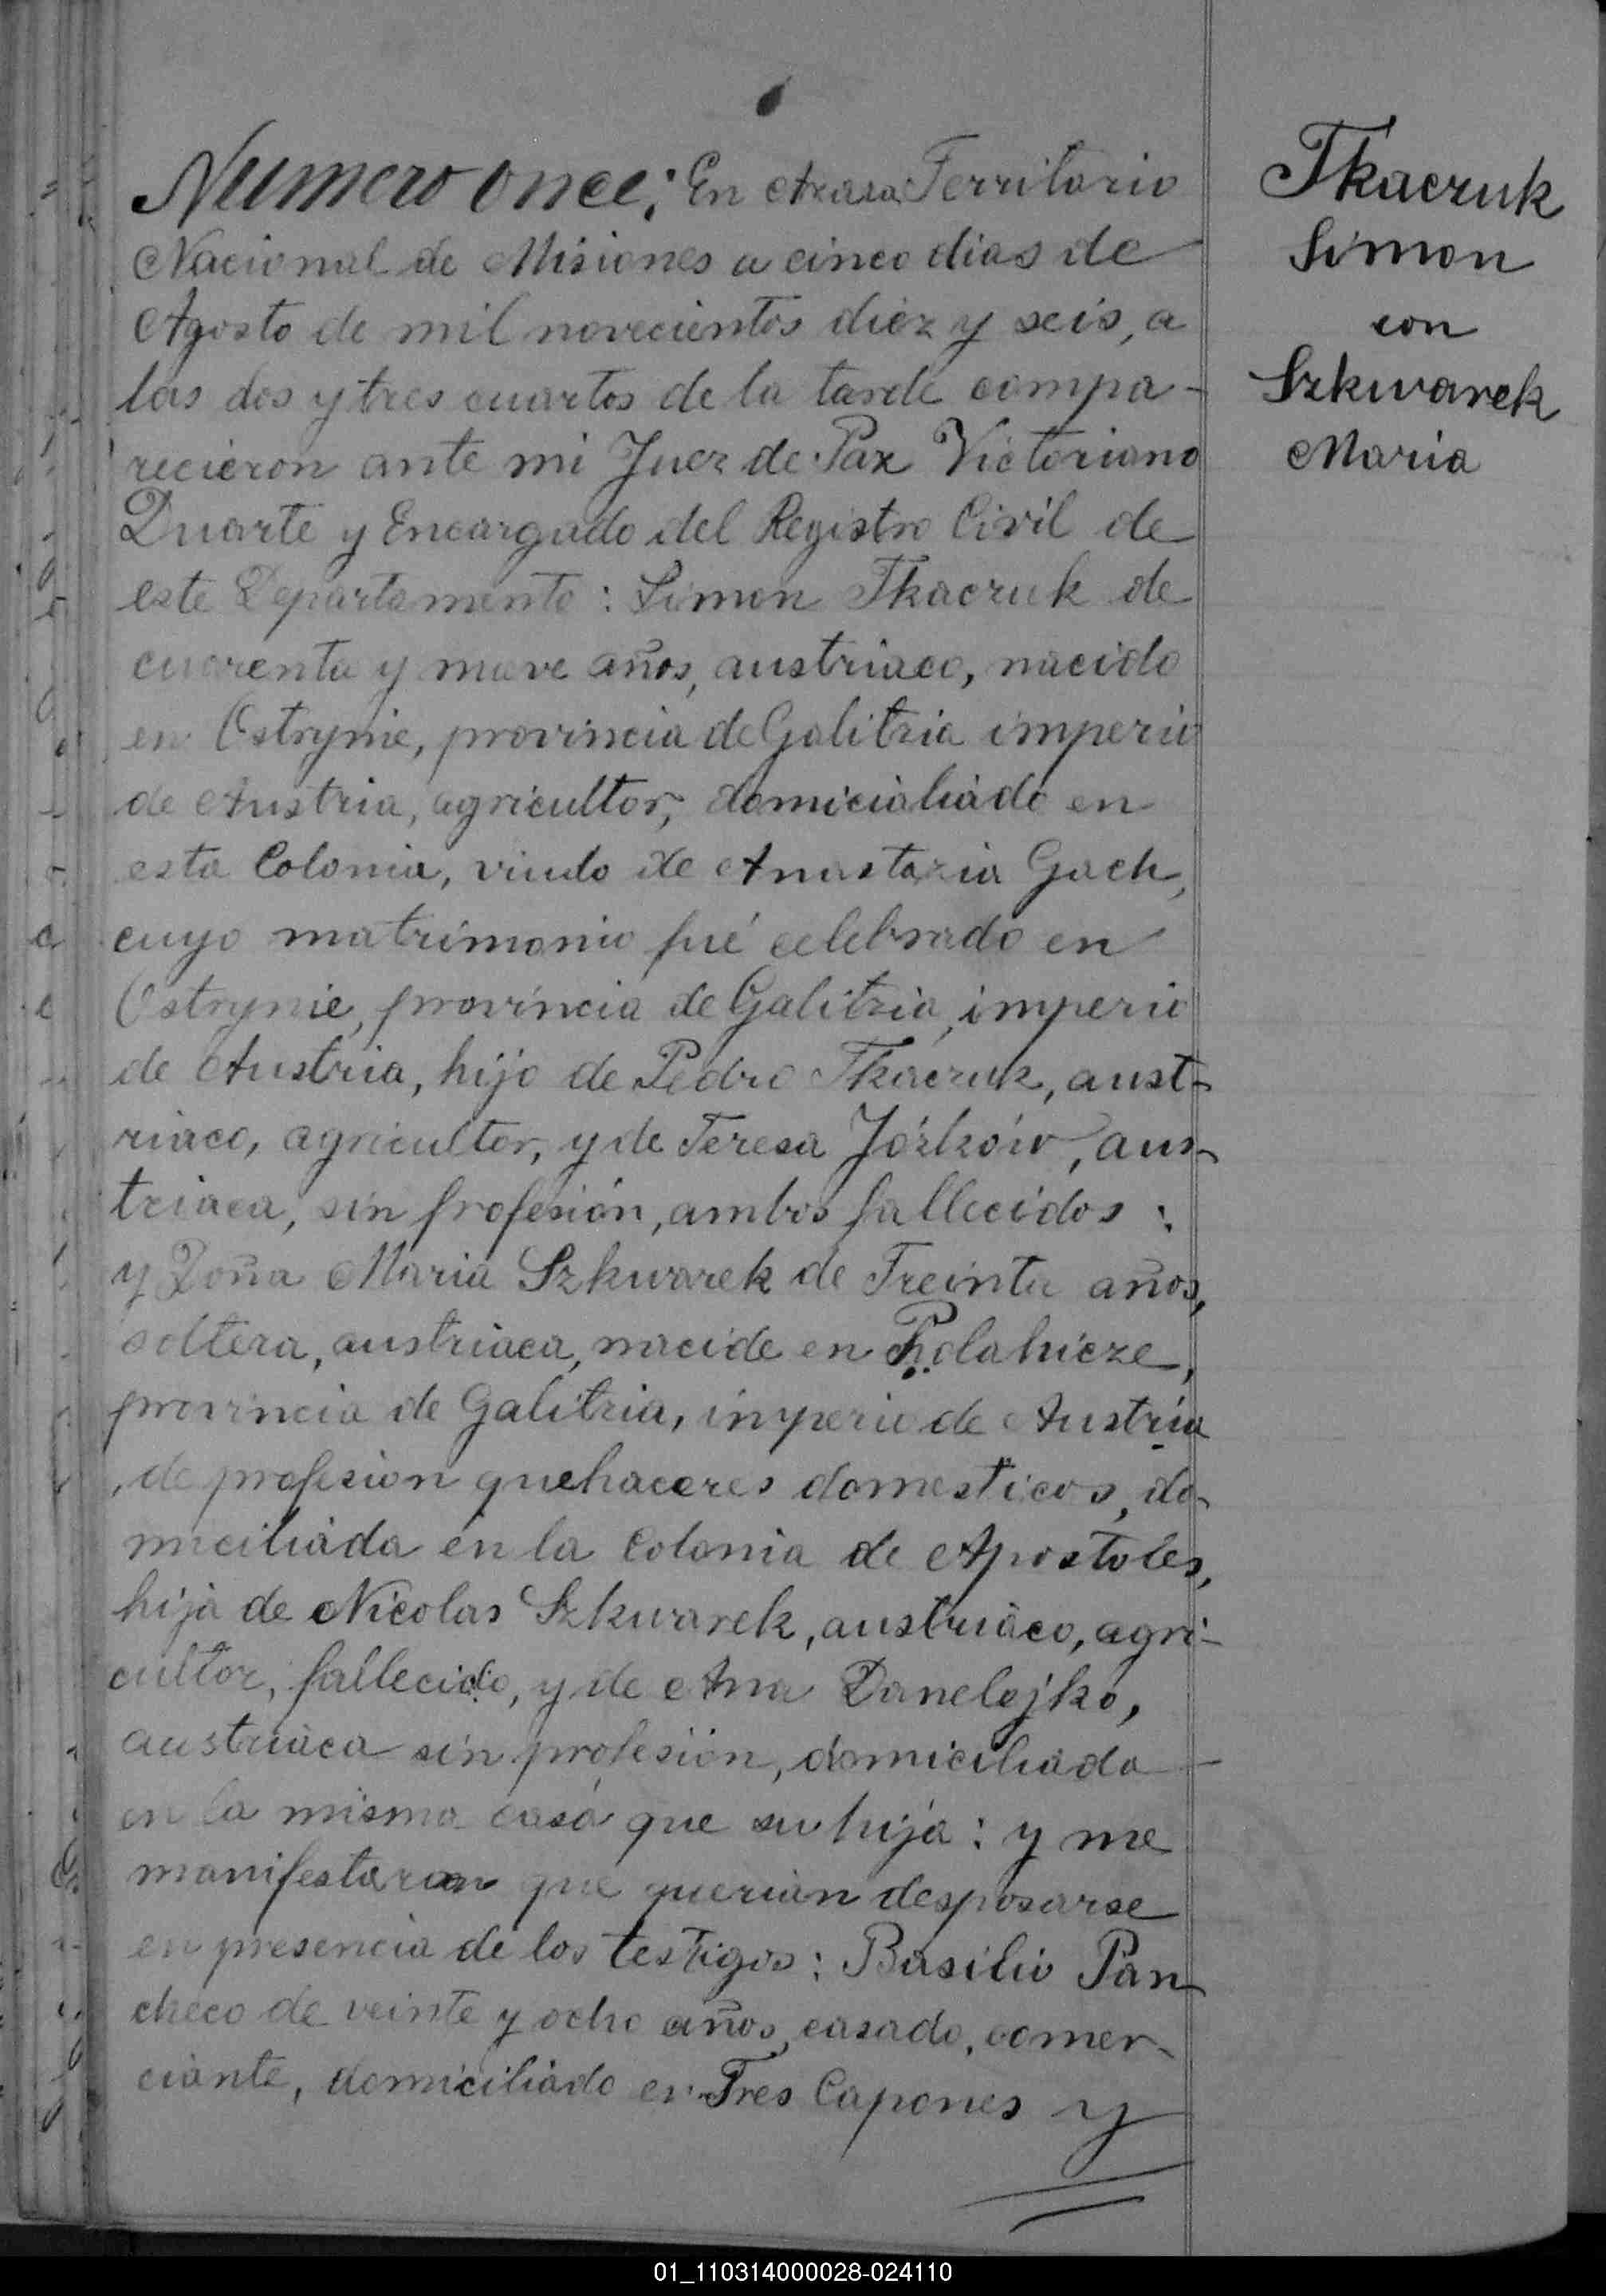 Numero once: En Azara Territorio
Nacional de Misiones a cinco dias de
Agosto de mil novecientos diez y seis, a
las dos y tres cuartos de la tarde compa-
recieron ante mi Juez de Paz Victoriano
Duarte y Encargado del Registro Civil de
este Departamento: Simon Tkaczuk de
cuarenta y nueve años, austriaco, nacido
en Ostrynie, provincia de Galitzia imperio
de Austria, agricultor, domicialiado en
esta Colonia, viudo de Anastazia Gach,
cuyo matrimonio fué celebrado en
Ostrynie, provincia de Galitzia, imperio
de Austria, hijo de Pedro Tkaczuk, aust-
riaco, agricultor, y de Teresa Jóźków, aus-
triaca, sin profesión, ambos fallecidos:
y Doña Maria Szkwarek de Treinta años,
soltera, austriaca, nacide en
provincia de Galitzia, imperio de Austria
, de profesion quehaceres domesticos, do-
miciliada en la Colonia de Apostoles,
hija de Nicolas Szkwarek, austriaco, agri-
cultor, fallecido, y de Ana Danelejko,
austriaca sin profesión, domiciliada
en la misma casa que su hija: y me
manifestaron que querian desposarse
en presencia de los testigos: Basilio Pan
checo de veinte y ocho años, casado, comer-
ciante, domiciliado en Tres Capones y
Tkaczuk
Simon
con
Szkwarek
Maria
01_110314000028-024110